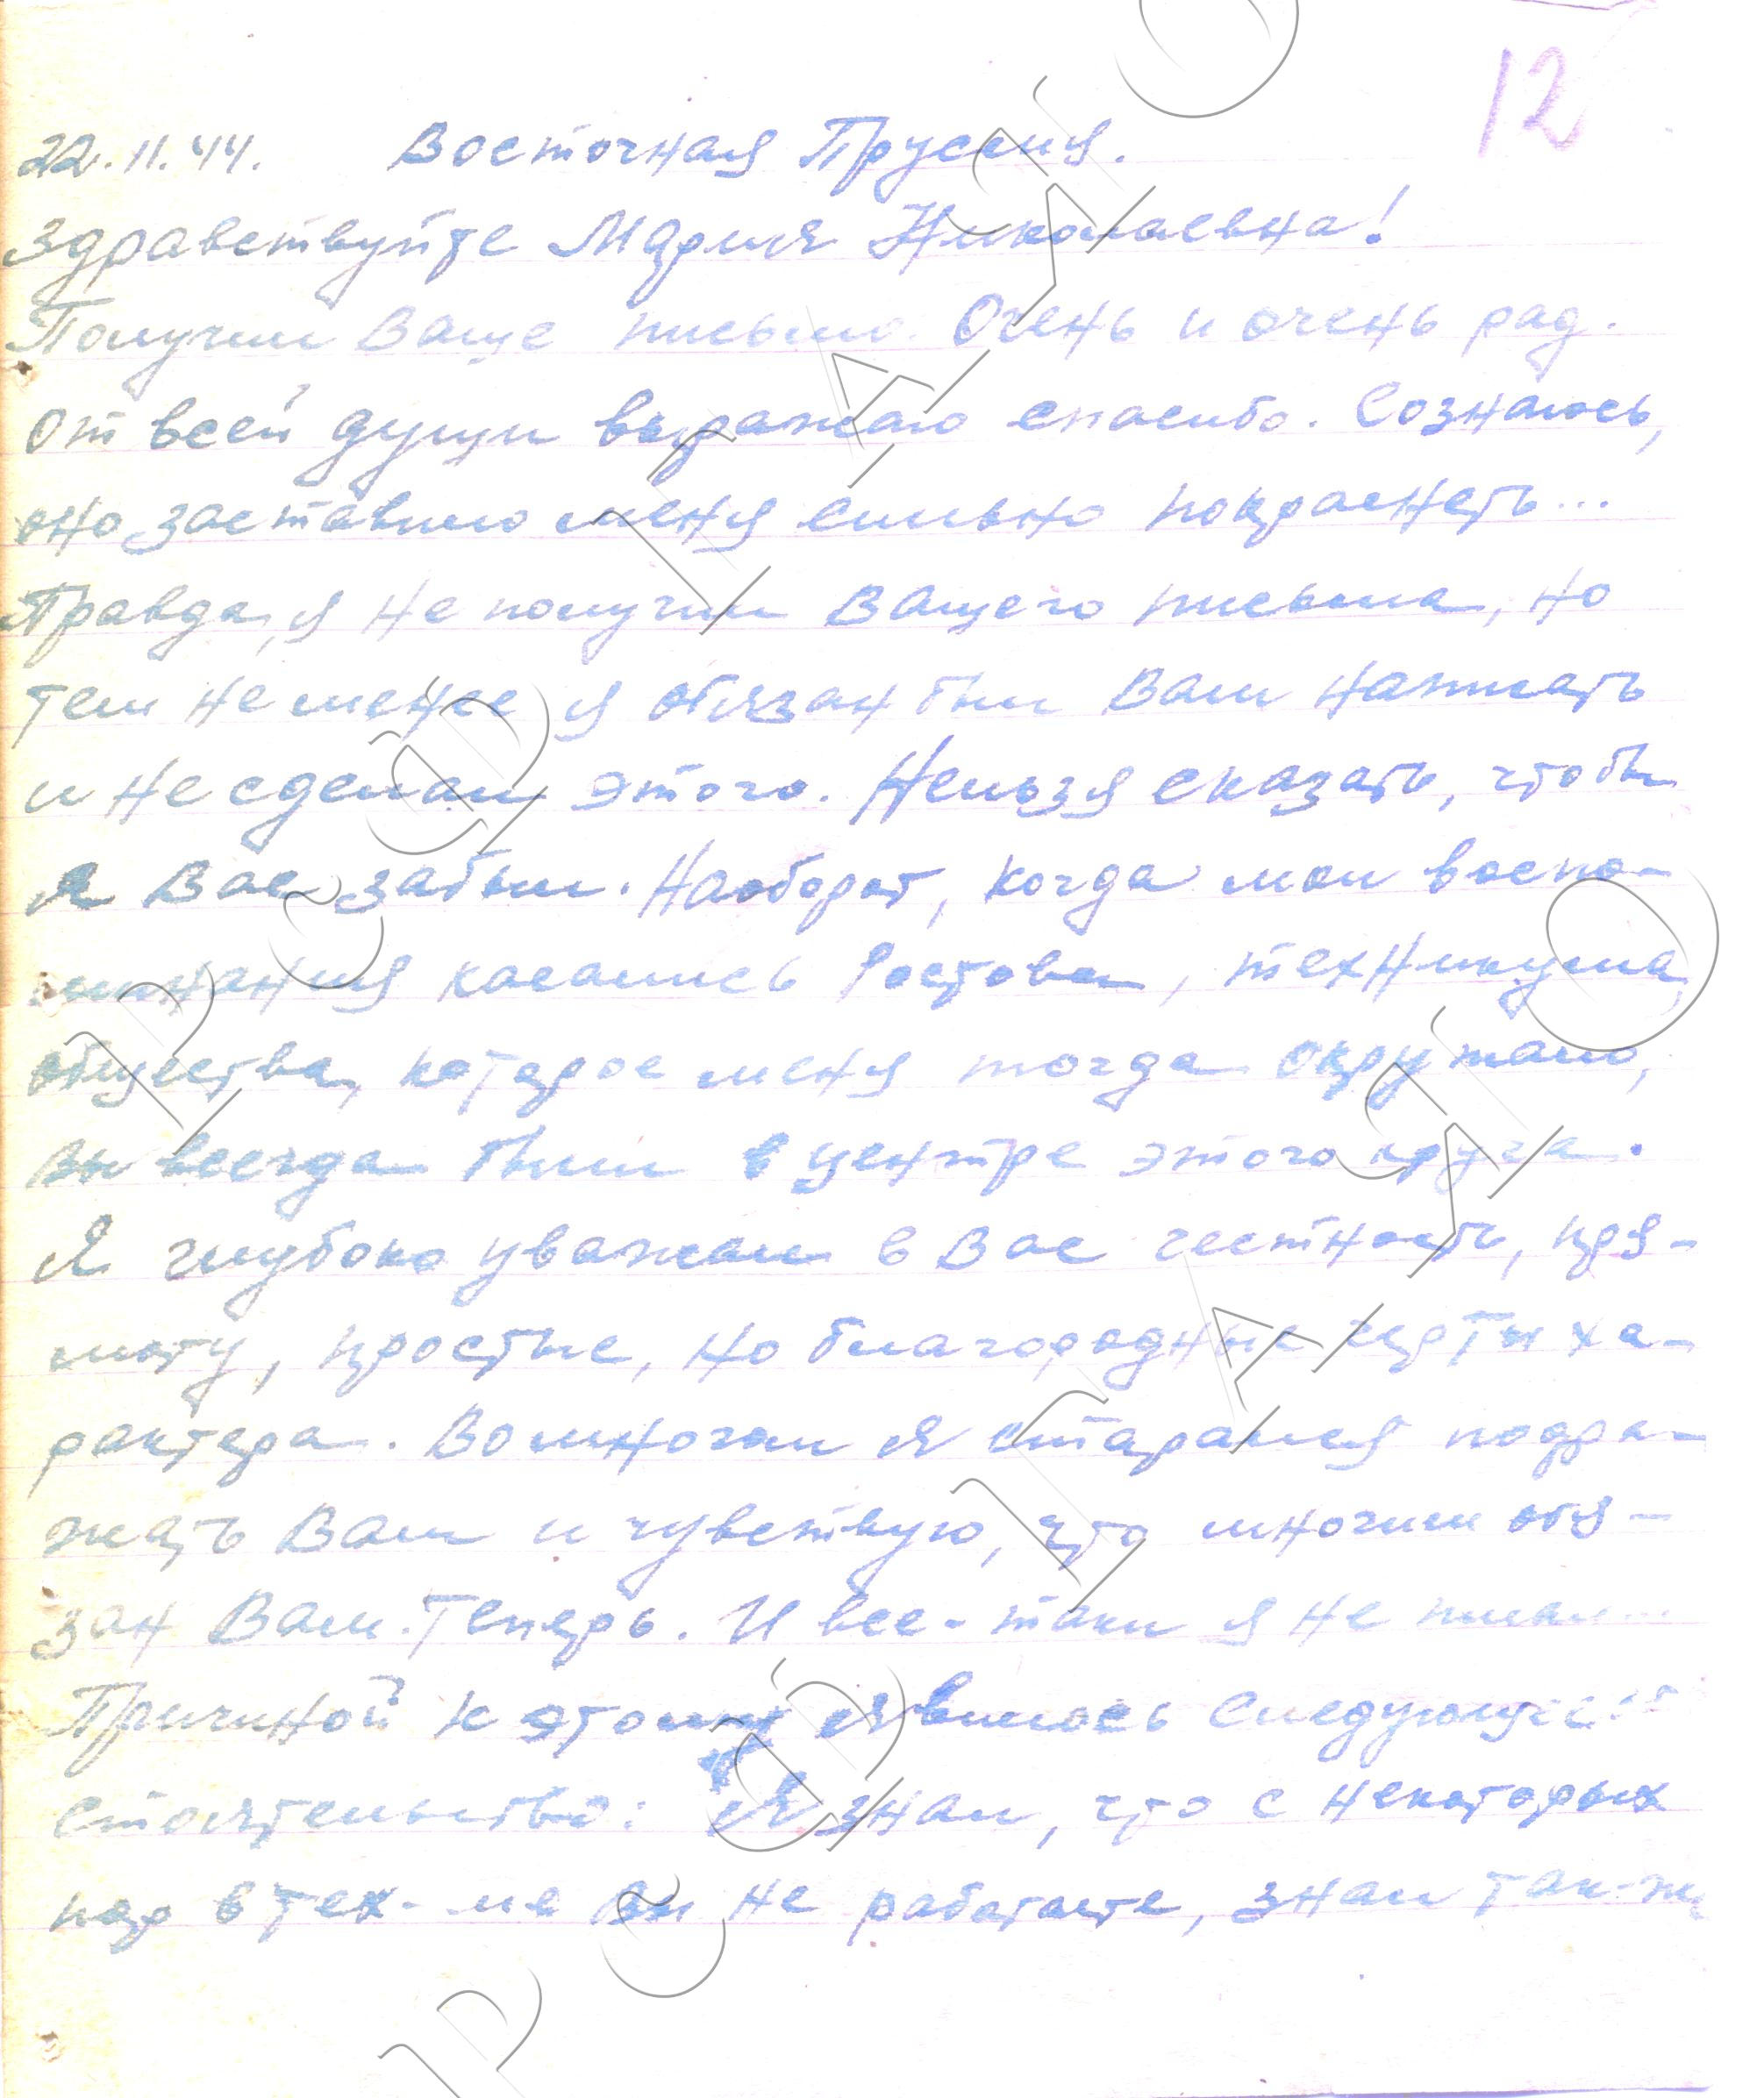 12
22.11.44. Восточная Пруссия.
Здравствуйте Мария Николаевна!
Получил Ваше письмо. Очень и очень рад.
От всей души выражаю спасибо. Сознаюсь,
оно заставило меня сильно покраснеть...
Правда, я не получил Вашего письма, но
тем не менее я обязан был Вам написать
и не сделал этого. Нельзя сказать, чтобы
я Вас забыл. Наоборот, когда мои воспо-
минания касались Ростова, техникума,
общества, которое меня тогда окружало,
Вы всегда были в центре этого круга.
Я глубоко уважаю в Вас честность, пря-
моту, простые, но благородные черты ха-
рактера. Во многом я старался подра-
жать Вам и чувствую, что многим обя-
зан Вам теперь. И все-таки я не писал...
Причиной к этому явилось следующее об
стоятельство: Я знал, что с некоторых
пор в тех-ме Вы не работаете, знал так-же